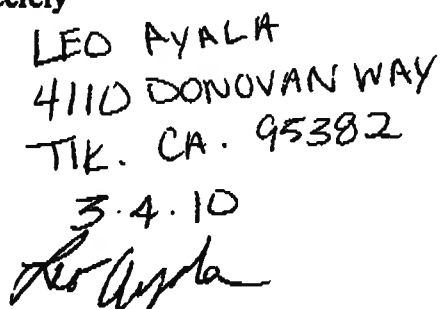 LEO AYALA
4110 DONOVAN WAY
TlK. CA. 95382
3.4.10
Leo Ayala